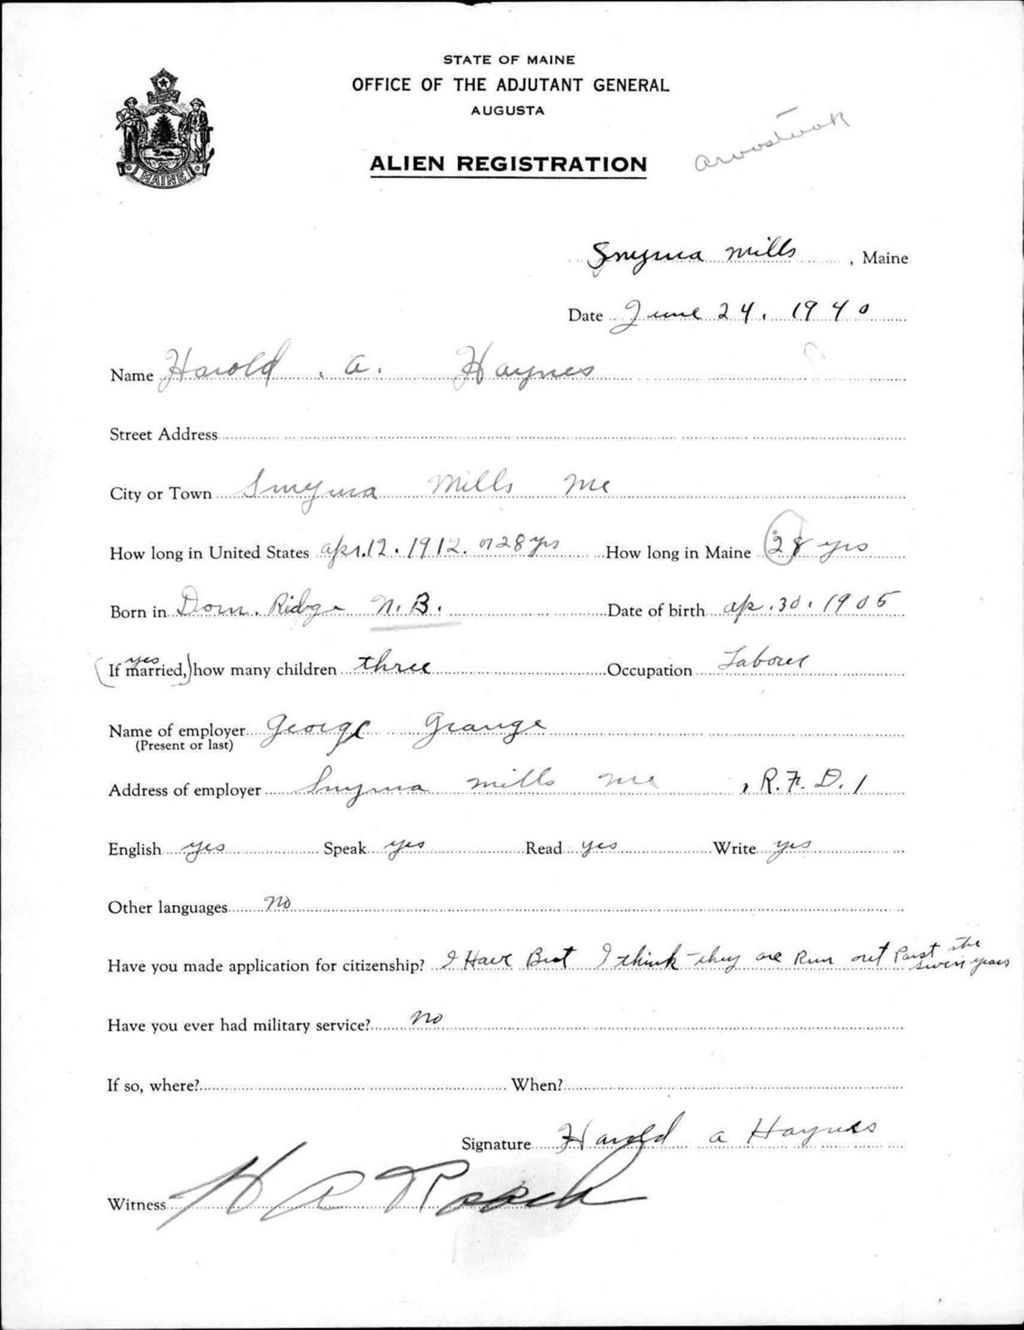 STATE OF MAINE
OFFICE OF THE ADJUTANT GENERAL
AUGUSTA
ALIEN REGISTRATION
Aroostook
MAINE
Smyrna Mills , Maine
Date June 24, 1940
Name Harold . A. Haynes
Street Address
City or Town Smyrna Mills Me
How long in United States apr.12.1912. or 28 yrs How long in Maine 28 yrs
Born in Dom. Ridge N.B. Date of birth ap.30.1905
yes
(If married,) how many children three Occupation Laborer
Name of employer George Grange
(Present or last)
Address of employer Smyrna Mills Me , R.F.D. 1
English yes Speak yes Read yes Write yes
Other languages No
Have you made application for citizenship? I Have But I think they are Run out Past the seven years
Have you ever had military service? No
If so, where? When?
Signature Harold A Haynes
Witness H A Roach